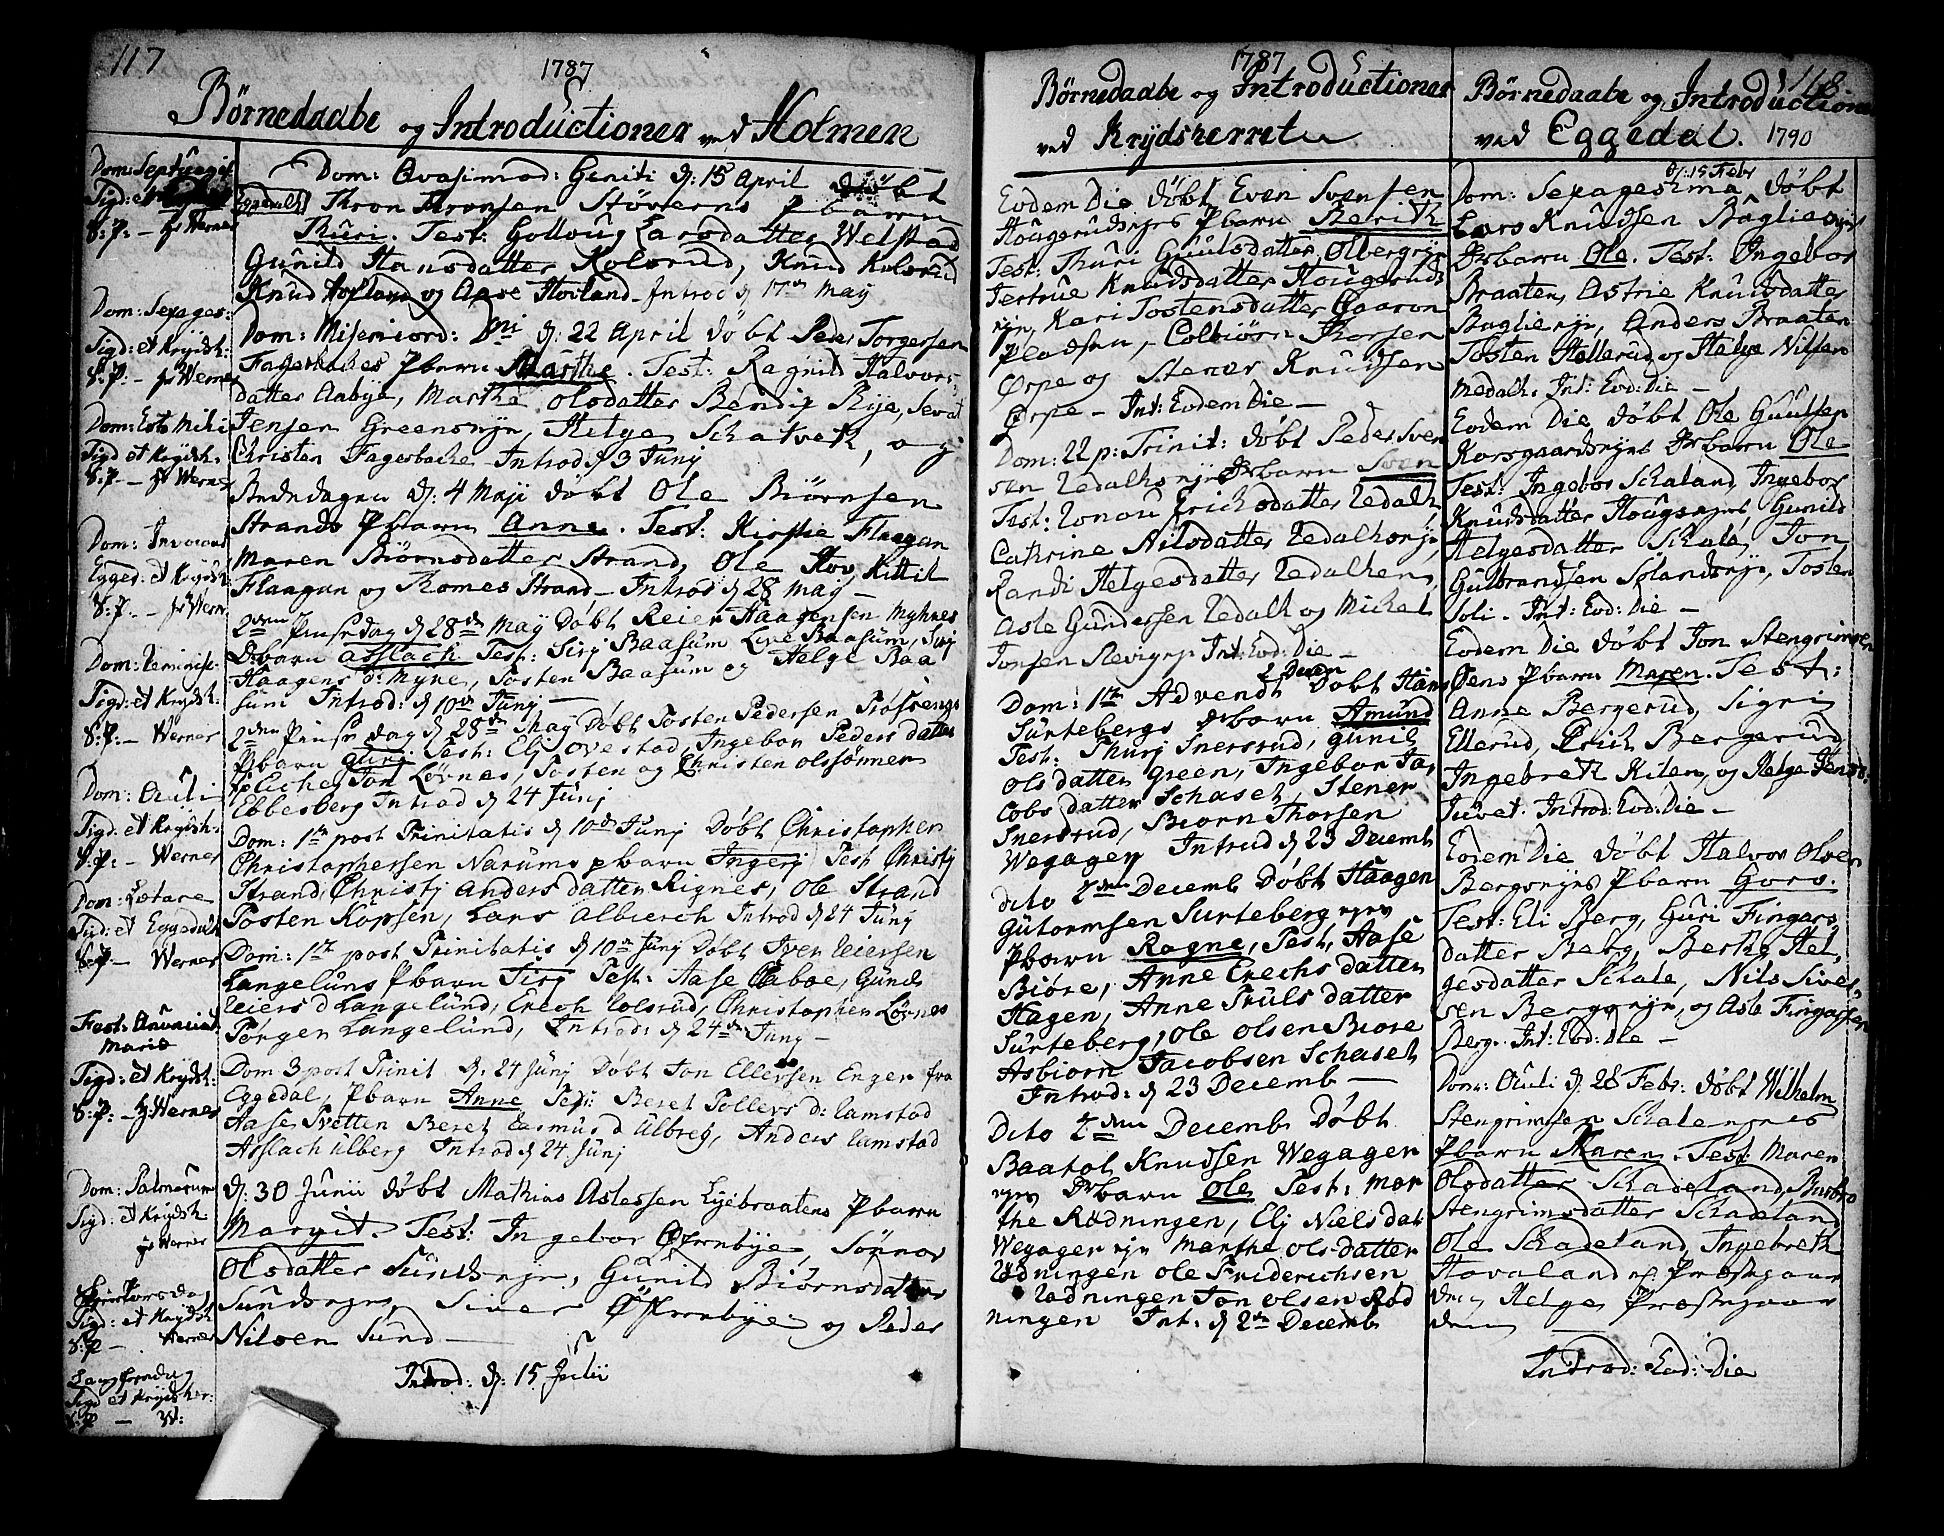 117
1787
Börnedaabe og Introductioner ved Holmen
Dom: Septuages
Sigd: et
S: P: - Hr Werner
Dom: Sexages:
Sigd: et Krÿdsh:
S: P: - Hr Werner
Dom: Esto Mihi
Sigd et Krÿdsh.
S: P. - Hr Werner
Dom: Invocavit
Egged: et Krÿdsh
S: P. - Hr Werner
Dom: Reminisc:
Sigd: et Krÿdsh
S: P: - Werner
Dom: Oculi
Sigd: et Krÿdsh.
S. P: - Werner
Dom: Lætare
Sigd: et Eggedahl
S: P - Werner
Fest: Anunciat:
Mariæ
Sigd: et Krÿdsh:
S: P: - Hr Werner
Dom: Palmarum
Sigd: et Krÿdsh.
Hr Werner
Skiertorsdag
Sigd: et Krÿdsh
S: P - Werner
Langfredag
Sigd et Krÿdsher:
S: P - W:
Dom: Qvasimod: Geniti d: 15 April döbt
Eggedahl Thron Thronsen Stöverns Pbarn
Thuri. Test: Golloug Larsdatter Welstad
Gunild Hansdatter Kolsrud, Knud Kolsrud
Knud Hofland og Aase Hovland - Introd d 17de Maÿ
Dom: Misericord: Dni d: 22 April döbt Peder Torgersen
Fagerbackes Pbarn Marthe. Test: Ragnild Halvors-
datter Aabye, Marthe Olsdatter Bendig Rye, Sevat
Jensen Greensrejn, Helge Schatvet, og
Christen Fagerbacke - Introd d 3 Junÿ
Bededagen d: 4 Maji döbt Ole Biörnsen
Strands Pbarn Anne. Test: Kirstie Flaagan
Maren Biörnsdatter Strand, Ole Hov, Kittil
Flaagan og Romes Strand - Introd d 28 Maÿ -
2den Pinsedag d 28de Maÿ Döbt Reier Haagensen Myhnes
Drbarn Asslach Test: Sirj Baasum Live Baasum, Sirj
Haagens d: Myne, Tosten Baasum og Helge Baa
sum Introd: d 10de Junj
2den Pinse dag d 28de Maÿ Döbt Tosten Pedersen
Pbarn Gurj Test: Elj Ovestad, Ingebor Peders datter
Jon Lövnes, Tosten og Christen Olssönner
Ebbesberg Introd d 24 Junj
Dom: 1te post Trinitatis d 10de Junj Döbt Christopher
Christophersen Narums pbarn Ingerj Test Christj
Strand, Christj Anders datter Rignes, Ole Strand
Tosten Kopsen, Lars Albierch Introd d 24 Junj
Dom: 1te post Trinitatis d 10de Junj Döbt Iver Reiersen
Langeluns Pbarn Sirj Test: Aase Aaboe, Guncht
Reiers d Langelund, Erech Colsrud, Christopher Lövnes
Törgen Langelund, Introd: d 24de Junj -
Dom 3 post Trinit d: 24 Junj Döbt Jon Ellevsen Enger fra
Eggedal, Pbarn Anne Test: Beret Tollevs d: Ramstad
Aase Tvetten Beret Rasmus d Ulbreg, Anders Ramstad
Asslach Ulberg Introd d 24 Junj
d: 30 Junii döbt Mathias Aslessen Lyebraatens Pbarn
Margit. Test: Ingebor Öfrnbye, Sönnov
Olsdatter Sundsrejn, Gunild Biörnsdatter
Sundsrejns, Siver Öfrnbye og Peder
Nilsen Sund -
Introd: d: 15 Julii
1787
Börnedaabe og Introductioner
ved Krÿdsherret
Eodem Die döbt Even Svensen
Hougerudsejes Pbarn Berith
Test: Thuri Guulsdatter Olbergejr
Jertrue Knudsdatter Hougeruds
ejn, Kari Tostensdatter Gaaron
Pladsen, Colbiörn Thorsen
Örpe og Stener Knudsen
Örpe - Int: Eodem Die -
Dom: 22 p: Trinit: döbt Peder Sven
sen Redalhsejn Drbarn Sven
Test: Ronau Erichsdatter Redalh
Cathrine Nilsdatter Redalhsejn
Randi Helgesdatter Redalhen,
Asle Gundersen Redalh og Michel
Jonsen Slevigejr Int: Eod: Die -
Dom: 1te Advendt 2 Decem Döbt Hans
Surtebergs Drbarn Amund
Test: Thurj Snersrud, Gunil
Ols datter Green, Ingebor Ja,
cobs datter Schaset, Stener
Snersrud, Biorn Thorsen
Wegager Introd d 23 Decemb
dito 2den Decemb Döbt Haagen
Gutormsen Surteberg ejes
Pbarn Ragne, Test, Aase
Biöre, Anne Erechs datter
Hagen, Anne Truls datter
Surteberg, Ole Olsen Biore
Asbiorn Jacobsen Schaset
Introd: d 23 Decemb -
Dito 2den Decemb Döbt
Baatol Knudsen Wegager
ejes Drbarn Ole Test: Mar
the Rödningen, Elj Niels dat
Wegager ejn Marthe Ols datter
Rödningen Ole Friderichsen
Rödningen Jon Olsen Röd
ningen Int: d 2de Decemb
118
Börnedaabe og Introductioner
ved Eggedal. 1790
Dom: Sexagesima d: 15 Febr döbt
Lars Knudsen Baglieejes
Drbarn Ole. Test: Ingebor
Braaten, Astrie Knudsdatter
Baglieejn, Anders Braaten
Tosten Hellerud og Helge Nilsen
Medalh. Int: Eod: Die -
Eodem Die döbt Ole Guulsen
Korsgaardsejes Drbarn Ole
Test: Ingebor Schaland, Ingebor
Knudsdatter Hougsejes, Gunild
Helgesdatter Schale, Jon
Gulbrandsen Solandsejn, Tosten
Soli. Int: Eod: Die -
Eodem Die döbt Jon Stengrimsen
Öens Pbarn Maren. Test:
Anne Bergerud, Sigri
Ellerud, Erich Bergerud,
Ingebreth Kiten, og Helge Jens:
Juvet. Introd: Eod: Die -
Eodem Die döbt Halvor Olsen
Bergsejes Pbarn Goro.
Test: Eli Berg, Guri Fingars
datter Berg, Berthe Hel,
gesdatter Schale, Nils Siver,
sen Bergsejn, og Asle Fingarsen
Berg. Int: Eod: Die -
Dom: Oculi d: 28 Febr: döbt Wilhelm
Stengrimsen Schalensejes
Pbarn Maren. Test Maren
Olsdatter Schadeland, Barbro
Stengrimsdatter Schadeland
Ole Schadeland, Ingebreth
Hovaland ved Prestegaar
den, Helge Prestegaar
den
Introd: Eod: Die